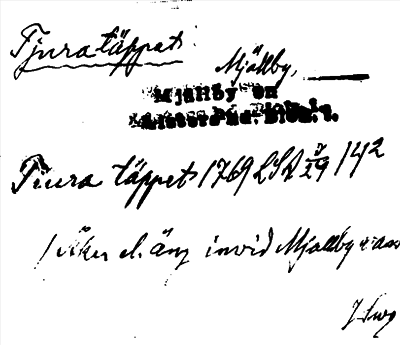 Tjura täppet
Mjällby,
Mjällby sn
Listers hd. Blek. l.
Tiura täppet 1769 LSA 142
Åker el. äng invid Mjällby